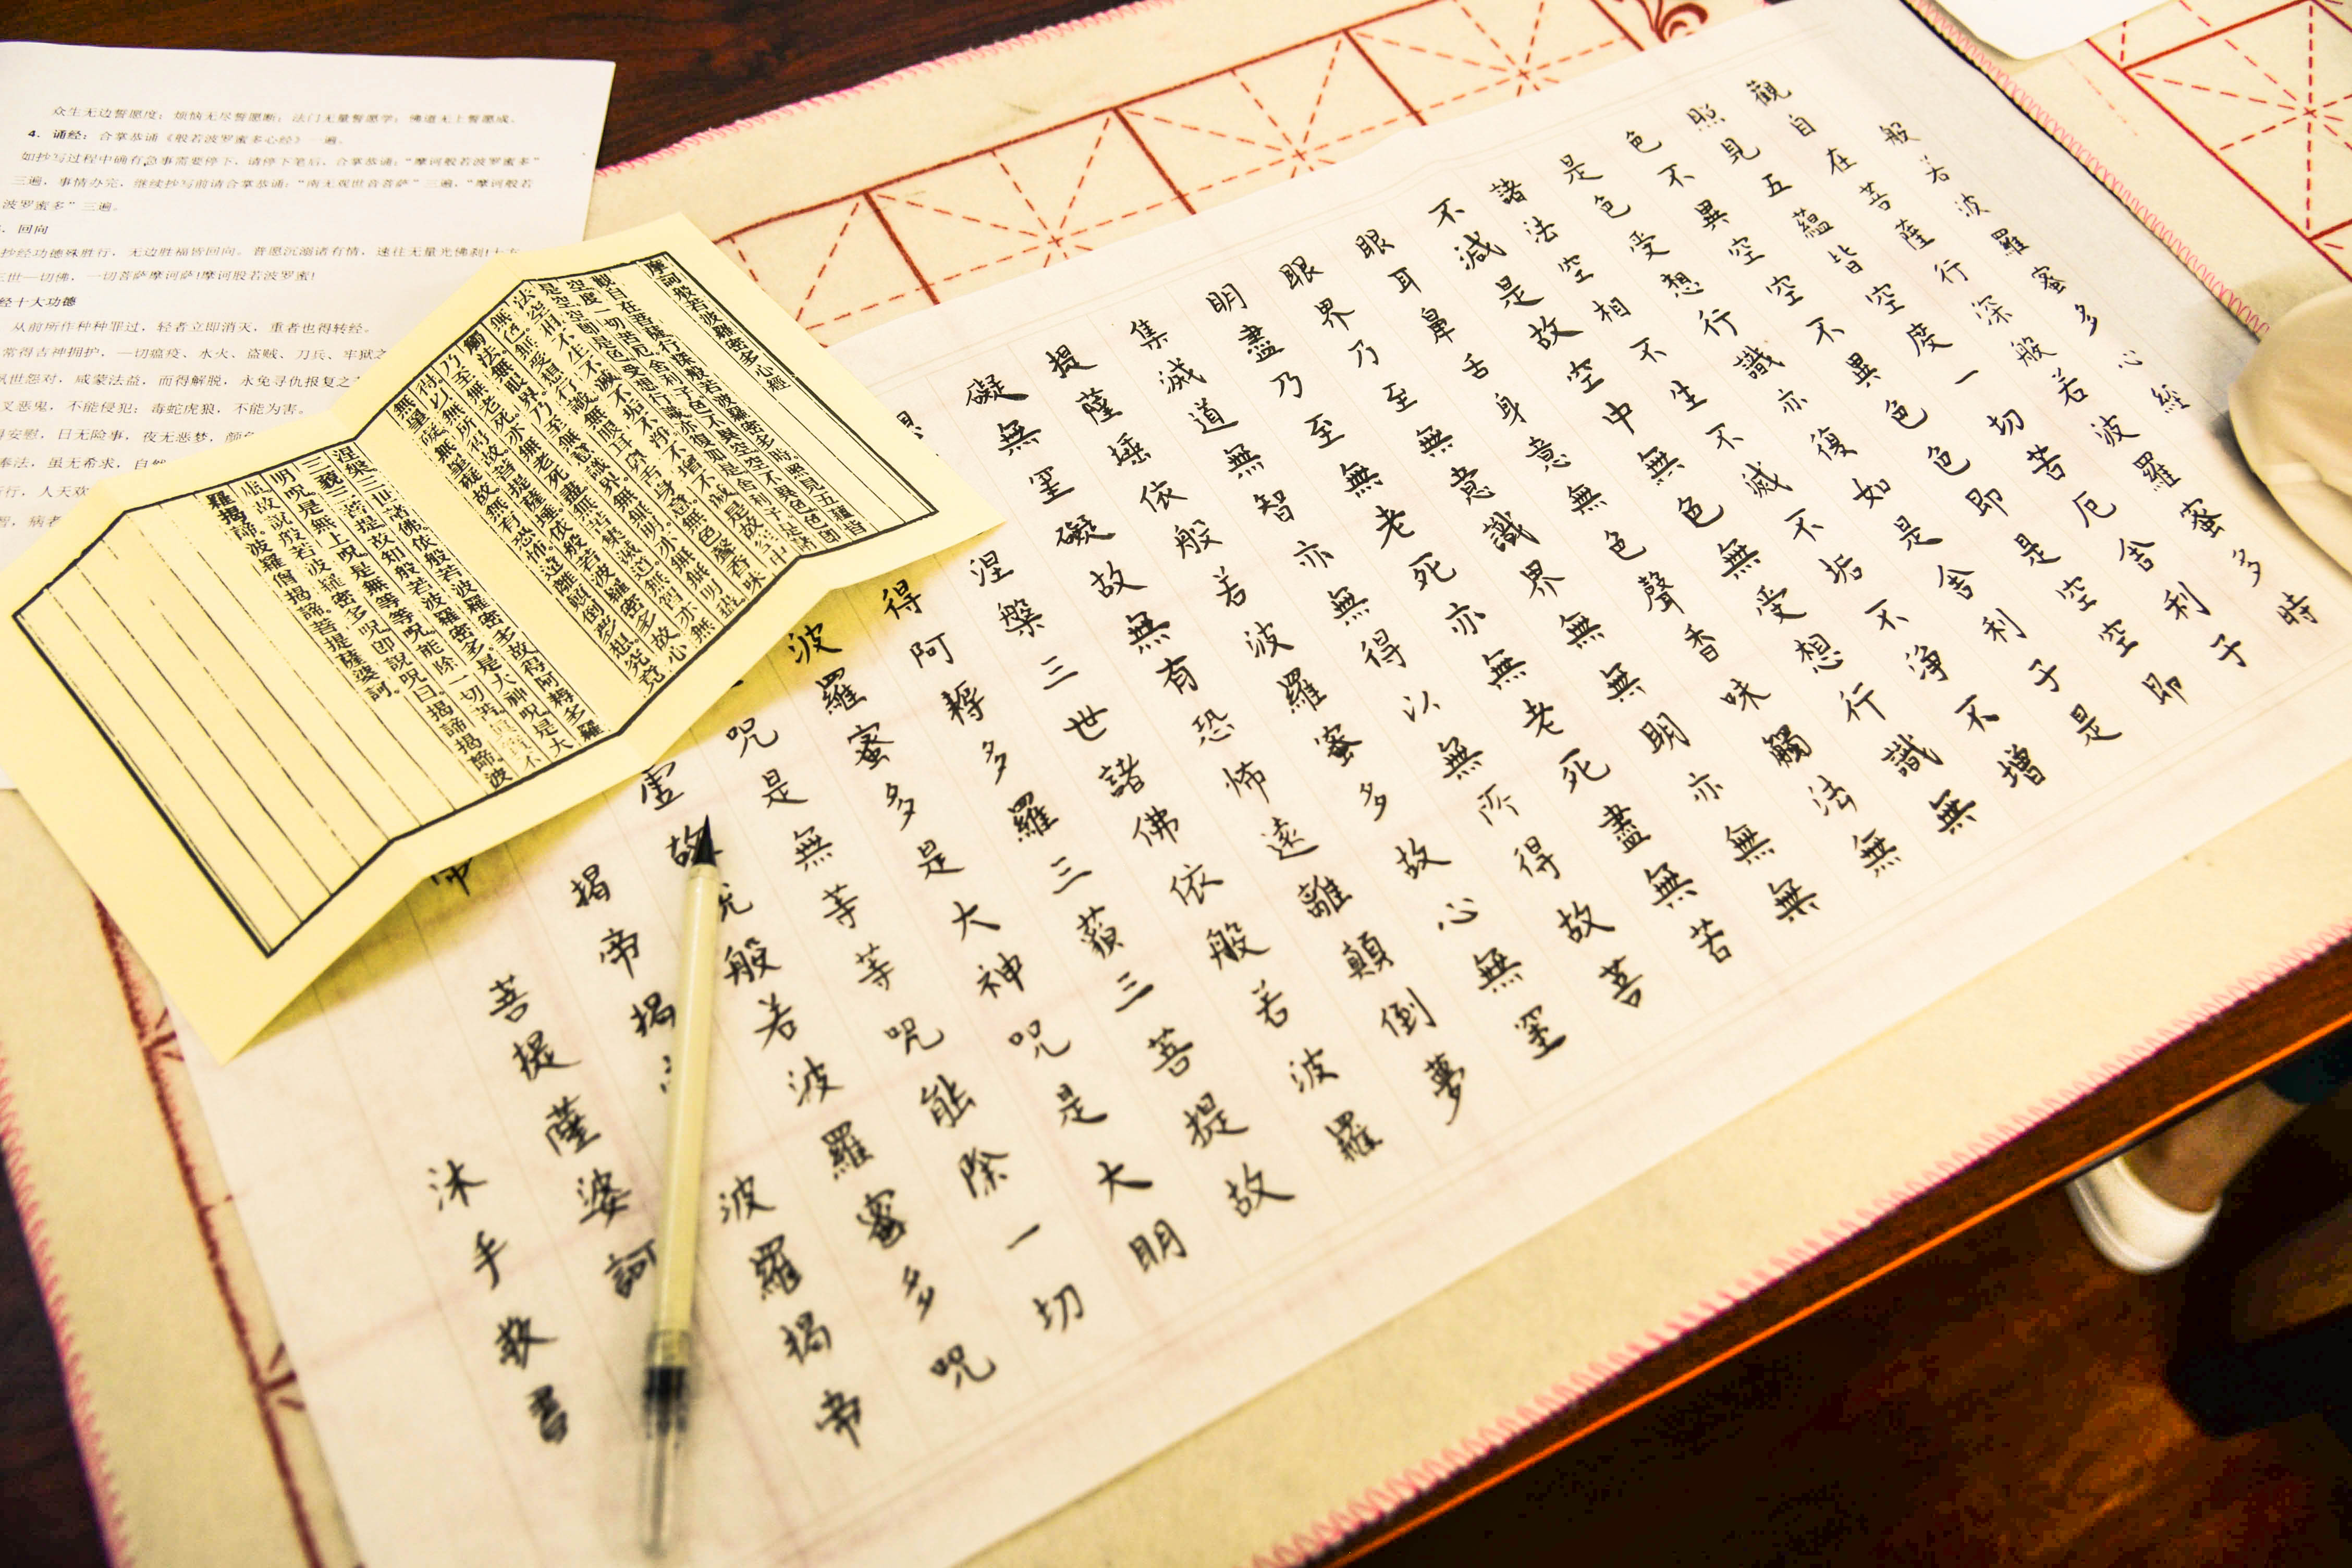 般若波羅蜜多心經
觀自在菩薩行深般若波羅蜜多時
照見五蘊皆空度一切苦厄舍利子
色不異空空不異色色即是空空即是
是色受想行識亦復如是舍利子
諸法空相不生不滅不垢不淨不增
不減是故空中無色無受想行識無
眼耳鼻舌身意無色聲香味觸法無
眼界乃至無意識界無無明亦無無
明盡乃至無老死亦無老死盡無苦
集滅道無智亦無得以無所得故菩
提薩埵依般若波羅蜜多故心無罣
礙無罣礙故無有恐怖遠離顛倒夢
涅槃三世諸佛依般若波羅
得阿耨多羅三藐三菩提故
波羅蜜多是大神咒是大明
咒是無等等咒能除一切
虛故 般若波羅蜜多咒
揭帝揭 波羅揭帝
帝 菩提薩婆訶
沐手敬書
摩訶般若波羅密多心經
觀自在菩薩行深般若波羅密多時照見五蘊皆
空度一切苦厄舍利子色不異空空不異色色即
是空空即是色受想行識亦復如是舍利子是諸
法空相不生不滅不垢不淨不增不減是故空中
無色無受想行識無眼耳鼻舌身意無色聲香味
觸法無眼界乃至無意識界無無明亦無無明盡
乃至無老死亦無老死盡無苦集滅道無智亦無
得以無所得故菩提薩埵依般若波羅密多故心
無罣礙無罣礙故無有恐怖遠離顛倒夢想究竟
涅槃三世諸佛依般若波羅密多故得阿耨多羅
三藐三菩提故知般若波羅密多是大神咒是大
明咒是無上咒是無等等咒能除一切苦真實不
虛故說般若波羅密多咒即說咒曰揭諦揭諦波
羅揭諦波羅僧揭諦菩提薩婆訶
众生无边誓愿度；烦恼无尽誓愿断；法门无量誓愿学；佛道无上誓愿成。
4．诵经：合掌恭诵《般若波罗蜜多心经》一遍。
如抄写过程中确有急事需要停下，请停下笔后，合掌恭诵：“摩诃般若波罗蜜多”
三遍，事情办完，继续抄写前请合掌恭诵：“南无观世音菩萨”三遍，“摩诃般若
波罗蜜多”三遍。
．回向
抄经功德殊胜行，无边胜福皆回向。普愿沉溺诸有情，速往无量光佛刹！十方
三世一切佛，一切菩萨摩诃萨！摩诃般若波罗蜜！
经十大功德
从前所作种种罪过，轻者立即消灭，重者也得转经。
常得吉神拥护，一切瘟疫、水火、盗贼、刀兵、牢狱之
世怨对，咸蒙法益，而得解脱，永免寻仇报复之
叉恶鬼，不能侵犯；毒蛇虎狼，不能为害。
得安慰，日无险事，夜无恶梦，颜色
奉法，虽无希求，自然
行，人天欢
智，病者